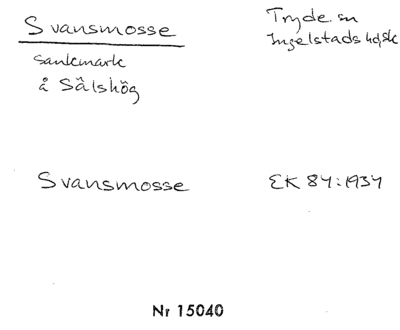 Svansmosse
Tryde sn
Ingelstads hd, Sk
sankmark
å Sålshög
Svansmosse
EK 84:1934
Nr 15040